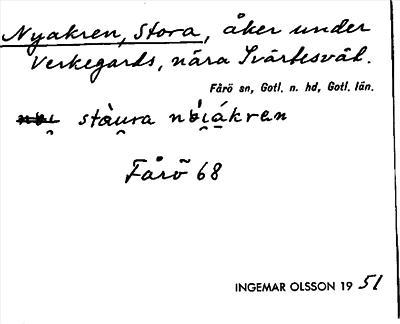 Nyakren, Stora, åker under
Verkegards, nära Svärtesvät.
Fårö sn, Gotl. n. hd, Gotl. län.
stàu̯ra nøi̯ákren
Fårö 68
INGEMAR OLSSON 19 51